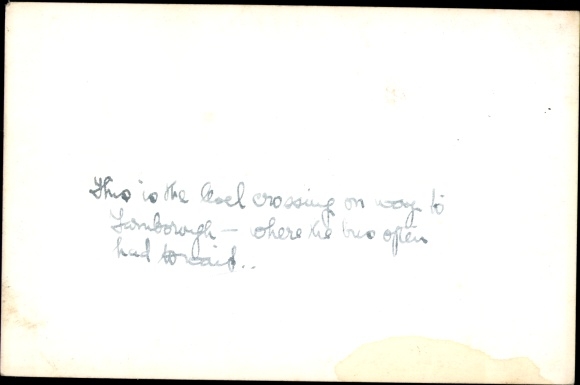 This is the level crossing on way to
Farnborough — where the bus often
had to wait..